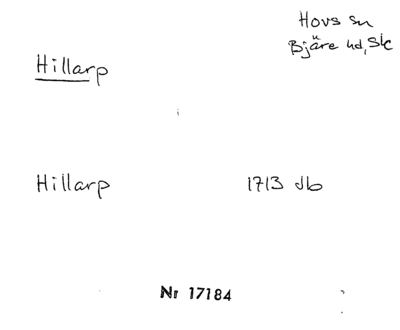 Hovs sn
Bjäre hd, Sk
Hillarp
Hillarp 1713 Jb
Nr 17184